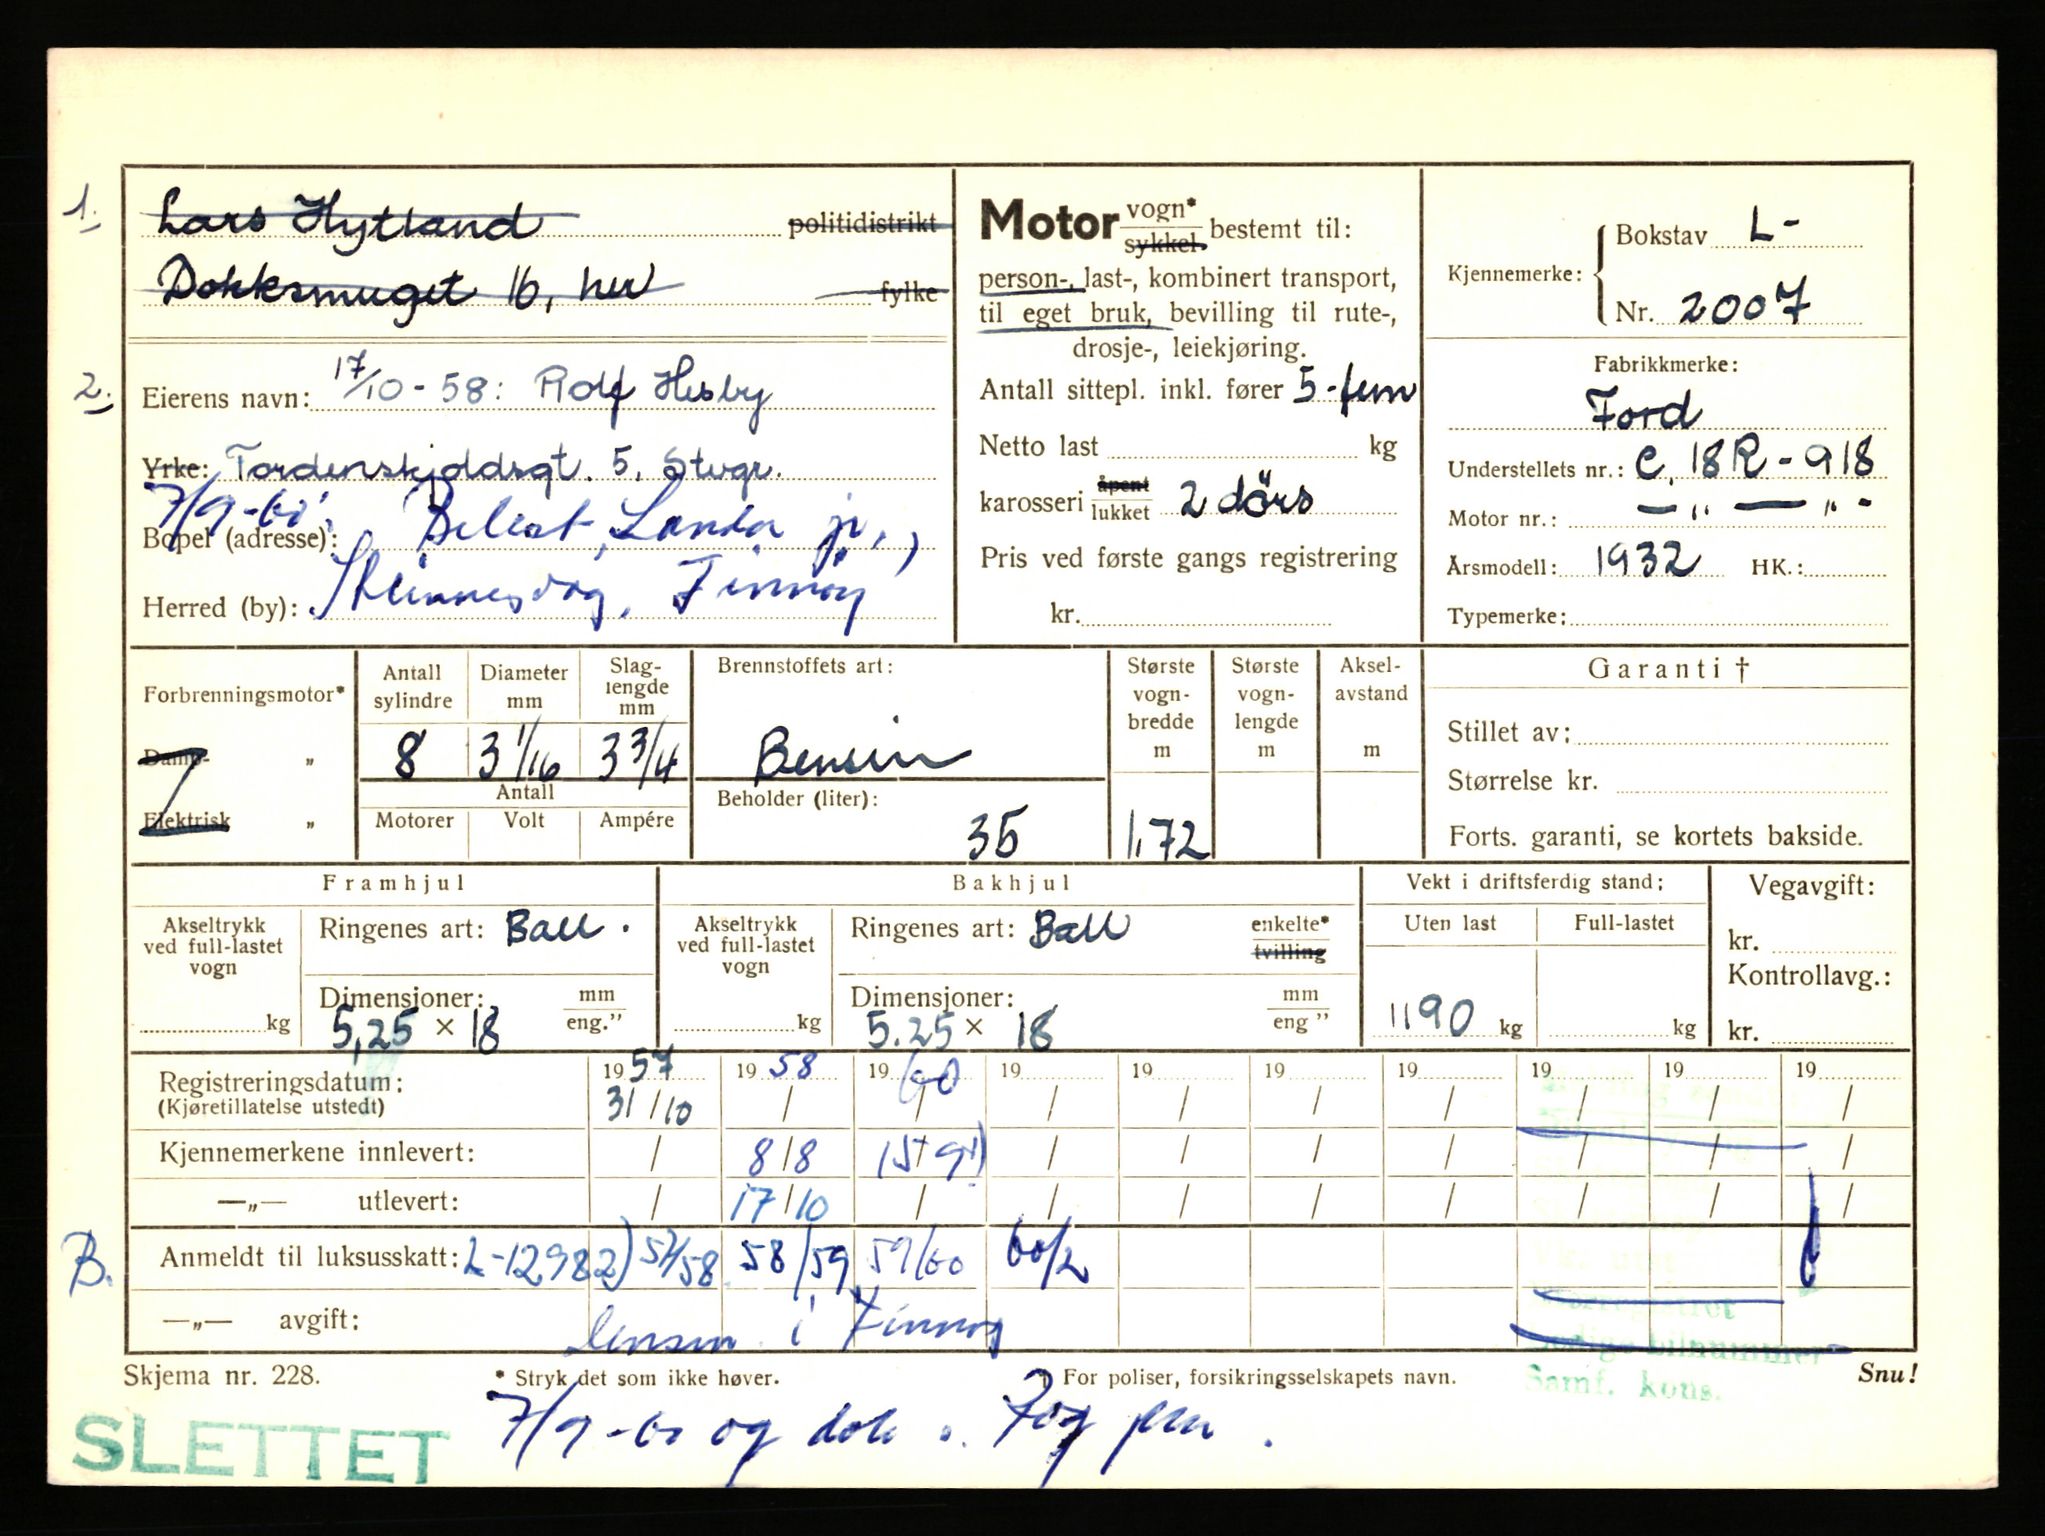 1.
Lars Hytland politidistrikt
Dokksmuget 16, her fylke
2.
Eierens navn: 17/10-58: Rolf Hesby
Yrke: Tordenskjoldsgt. 5, Stvgr.
7/9-60:
Bopel (adresse):
Herred (by): Finnøy
Motor vogn* sykkel. bestemt til:
person-, last-, kombinert transport,
til eget bruk, bevilling til rute-,
drosje-, leiekjøring.
Antall sittepl. inkl. fører 5-fem
Netto last kg
karosseri åpent lukket 2 dörs
Pris ved første gangs registrering
kr.
Kjennemerke: Bokstav L-
Nr. 2007
Fabrikkmerke:
Ford
Understellets nr.: C.18R-918
Motor nr.: — „ — „ -
Årsmodell: 1932 HK.:
Typemerke:
Forbrenningsmotor*
Damp- „
Elektrisk „
Antall sylindre
Diameter mm
Slaglengde mm
8 3 1/16 3 3/4
Antall
Motorer Volt Ampére
Brennstoffets art:
Bensin
Beholder (liter):
35
Største vogn-bredde m
1,72
Største vogn-lengde m
Aksel-avstand m
Garanti †
Stillet av:
Størrelse kr.
Forts. garanti, se kortets bakside.
Framhjul
Akseltrykk ved full-lastet vogn
kg
Ringenes art: Ball.
Dimensjoner: mm eng.”
5,25 × 18
Bakhjul
Akseltrykk ved full-lastet vogn
kg
Ringenes art: Ball enkelte* tvilling
Dimensjoner: mm eng ”
5.25 × 18
Vekt i driftsferdig stand:
Uten last Full-lastet
1190 kg kg
Vegavgift:
kr.
Kontrollavg.:
kr.
Registreringsdatum: 1957 1958 1960 19 19 19 19 19 19 19
(Kjøretillatelse utstedt) 31/10 / / / / / / / / /
Kjennemerkene innlevert: / 8/8 / / / / / / /
—„— utlevert: / 17/10 / / / / / / / /
B.
Anmeldt til luksusskatt: L-12982) 57/58 58/59 59/60 60/2
—„— avgift: i Finnøy
Skjema nr. 228.
* Stryk det som ikke høver.
† For poliser, forsikringsselskapets navn.
Snu!
Samf. kons.
SLETTET
7/9-60 og